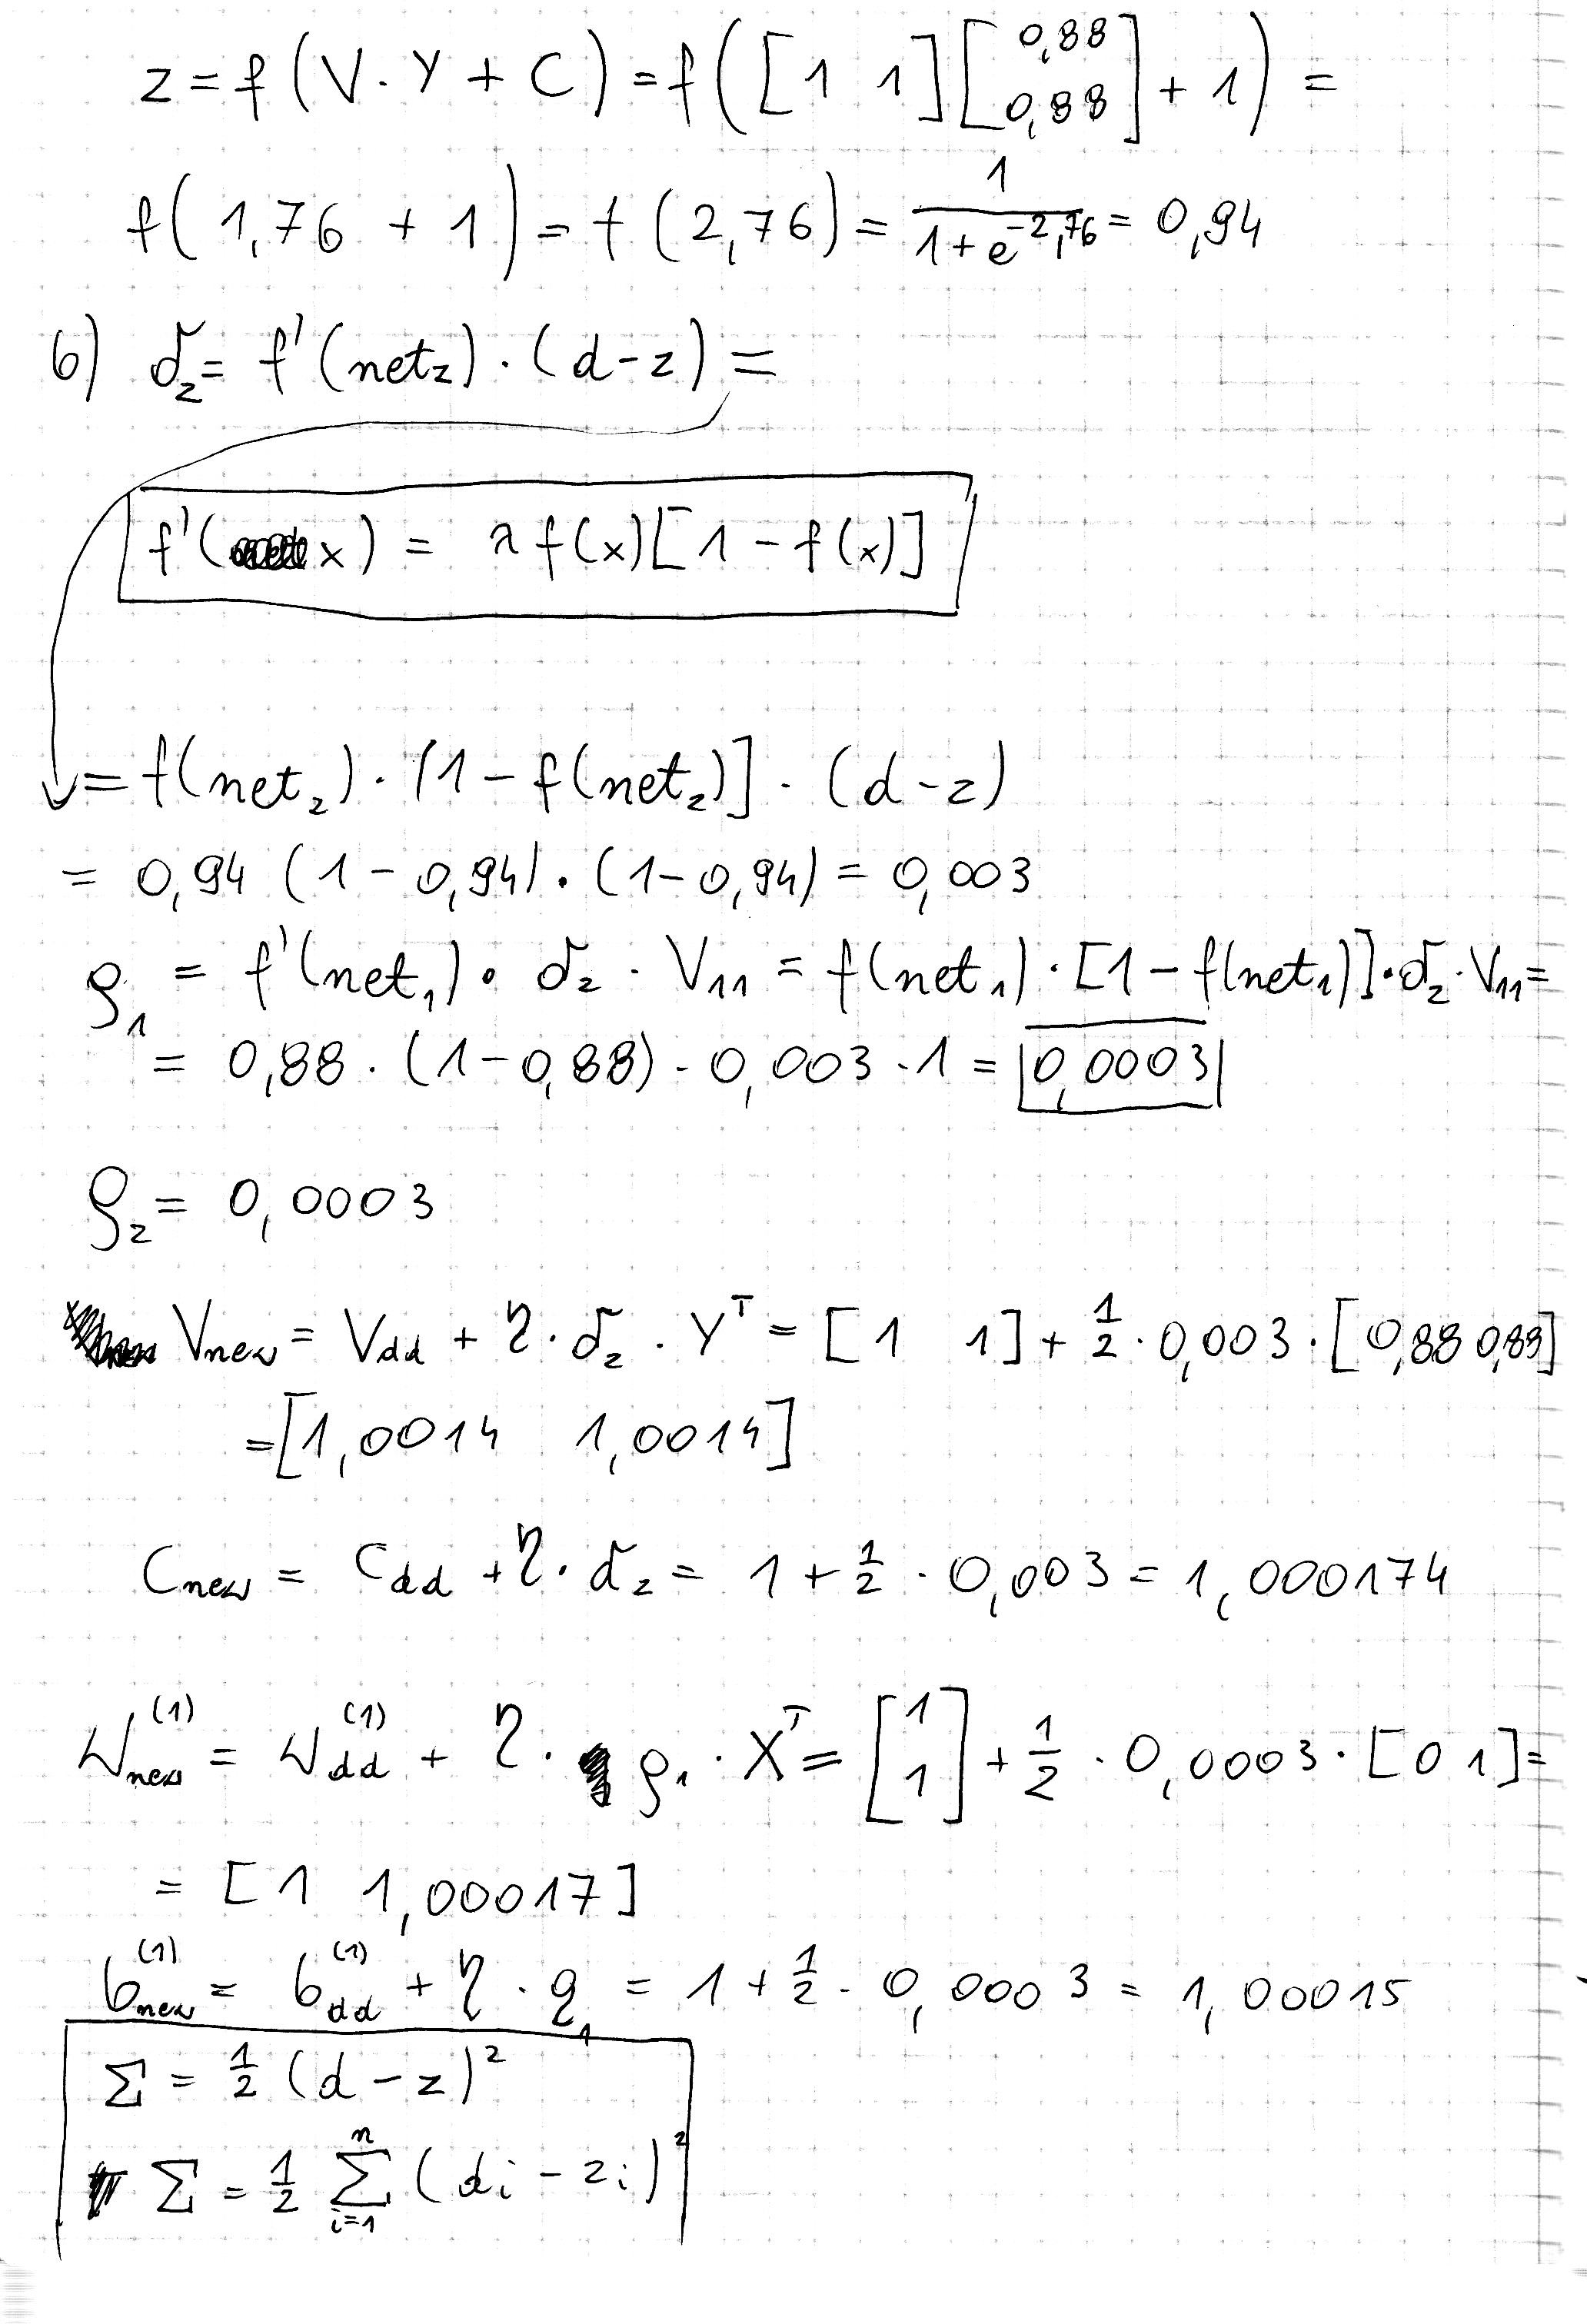 z = f (V · Y + C) = f ( [1 1] [0,88 0,88] + 1 ) =
f( 1,76 + 1 ) = f (2,76) = 1/(1+e^-2,76) = 0,94
b) δ₂ = f'(net₂) · (d - z) =
f'(x) = λ f(x) [1 - f(x)]
= f(net₂) · [1 - f(net₂)] · (d - z)
= 0,94 (1 - 0,94) · (1 - 0,94) = 0,003
ρ₁ = f'(net₁) · δ₂ · V₁₁ = f(net₁) · [1 - f(net₁)] · δ₂ · V₁₁ =
= 0,88 · (1 - 0,88) · 0,003 · 1 = 0,0003
ρ₂ = 0,0003
Vnew = Vold + η · δ₂ · Yᵀ = [1 1] + 1/2 · 0,003 · [0,88 0,88]
= [1,0014 1,0014]
Cnew = Cold + η · δ₂ = 1 + 1/2 · 0,003 = 1,000174
Wnew⁽¹⁾ = Wold⁽¹⁾ + η · ρ₁ · Xᵀ = [1 1] + 1/2 · 0,0003 · [0 1] =
= [1 1,00017]
bnew⁽¹⁾ = bold⁽¹⁾ + η · ρ₁ = 1 + 1/2 · 0,0003 = 1,00015
Σ = 1/2 (d - z)²
Σ = 1/2 Σ i=1 n (di - zi)²